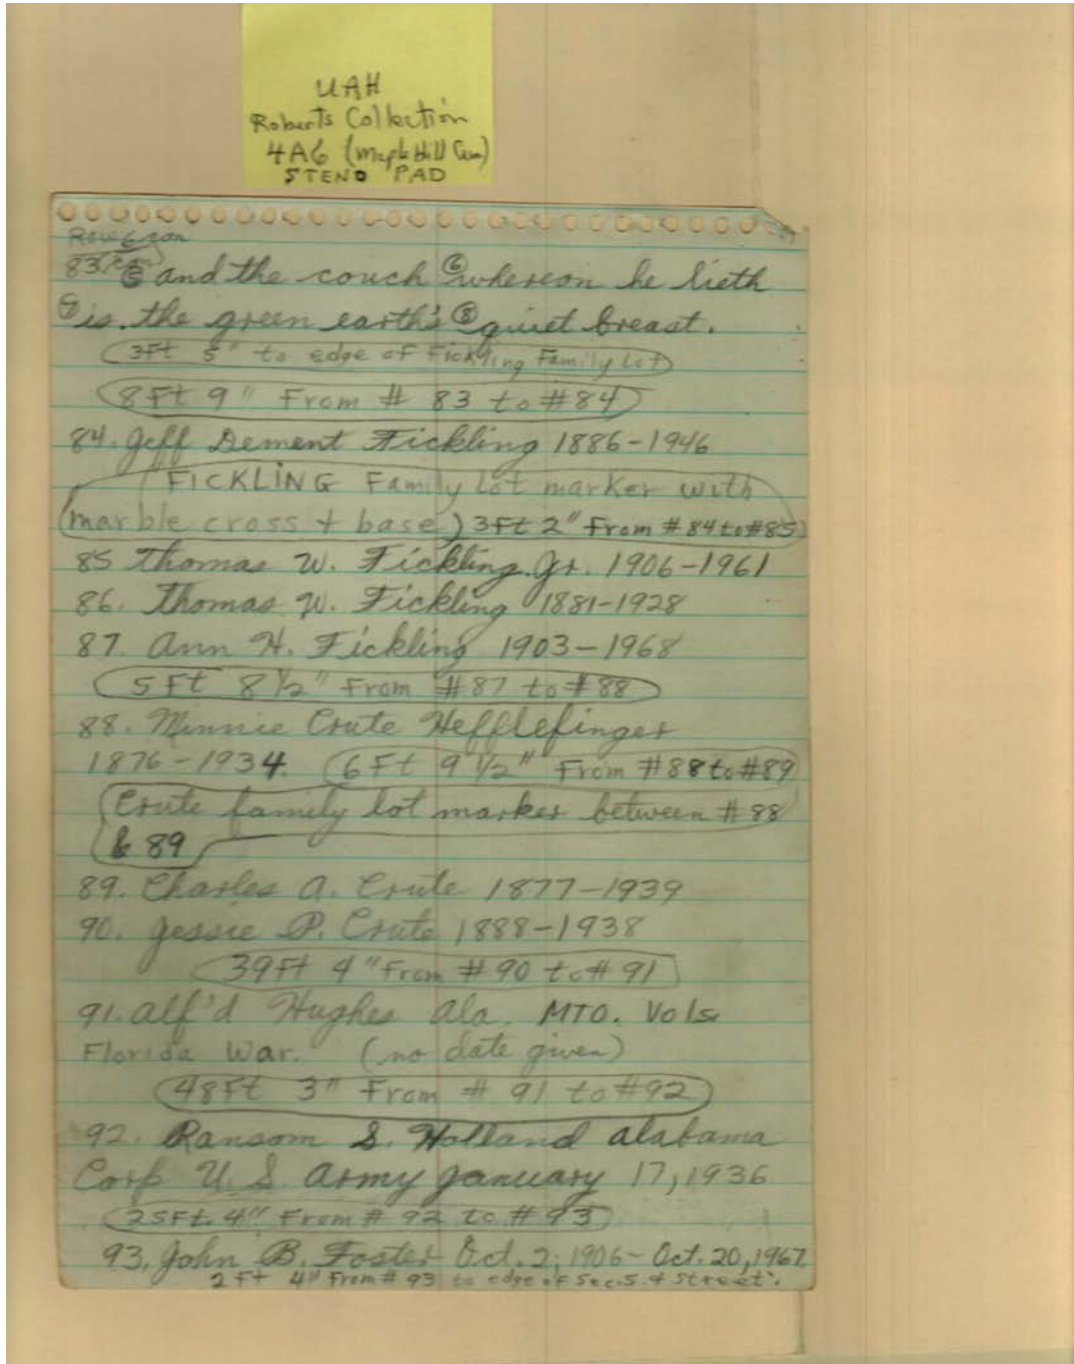 UAH
Roberts Collection
4A6 (Maple Hill Cem)
STENO PAD
Row 6 con
83. con ⑤ and the couch ⑥ whereon he lieth
⑦ is the green earth's ⑧ quiet breast.
3Ft 5" to edge of Fickling Family Lot
8Ft 9" From # 83 to #84
84. Jeff Dement Fickling 1886-1946
FICKLING Family Lot marker with
marble cross + base) 3Ft 2" From #84 to #85
85 Thomas W. Fickling Jr. 1906-1961
86. Thomas W. Fickling 1881-1928
87. Ann H. Fickling 1903-1968
5Ft 8 1/2" From #87 to #88
88. Minnie Crute Hefflefinger
1876-1934. 6Ft 9 1/2" From #88 to #89
Crute family lot marker between #88
& 89
89. Charles A. Crute 1877-1939
90. Jessie P. Crute 1888-1938
39Ft 4" From #90 to #91
91. Alf'd Hughes Ala. MTO. Vols.
Florida War. (no date given)
48Ft 3" From # 91 to #92
92. Ransom S. Holland Alabama
Corp U.S. Army January 17, 1936
25Ft. 4" From # 92 to # 93
93. John B. Foster Oct. 2, 1906- Oct. 20, 1967
2 Ft 4" From # 93 to edge of Sec. 5. + Street.